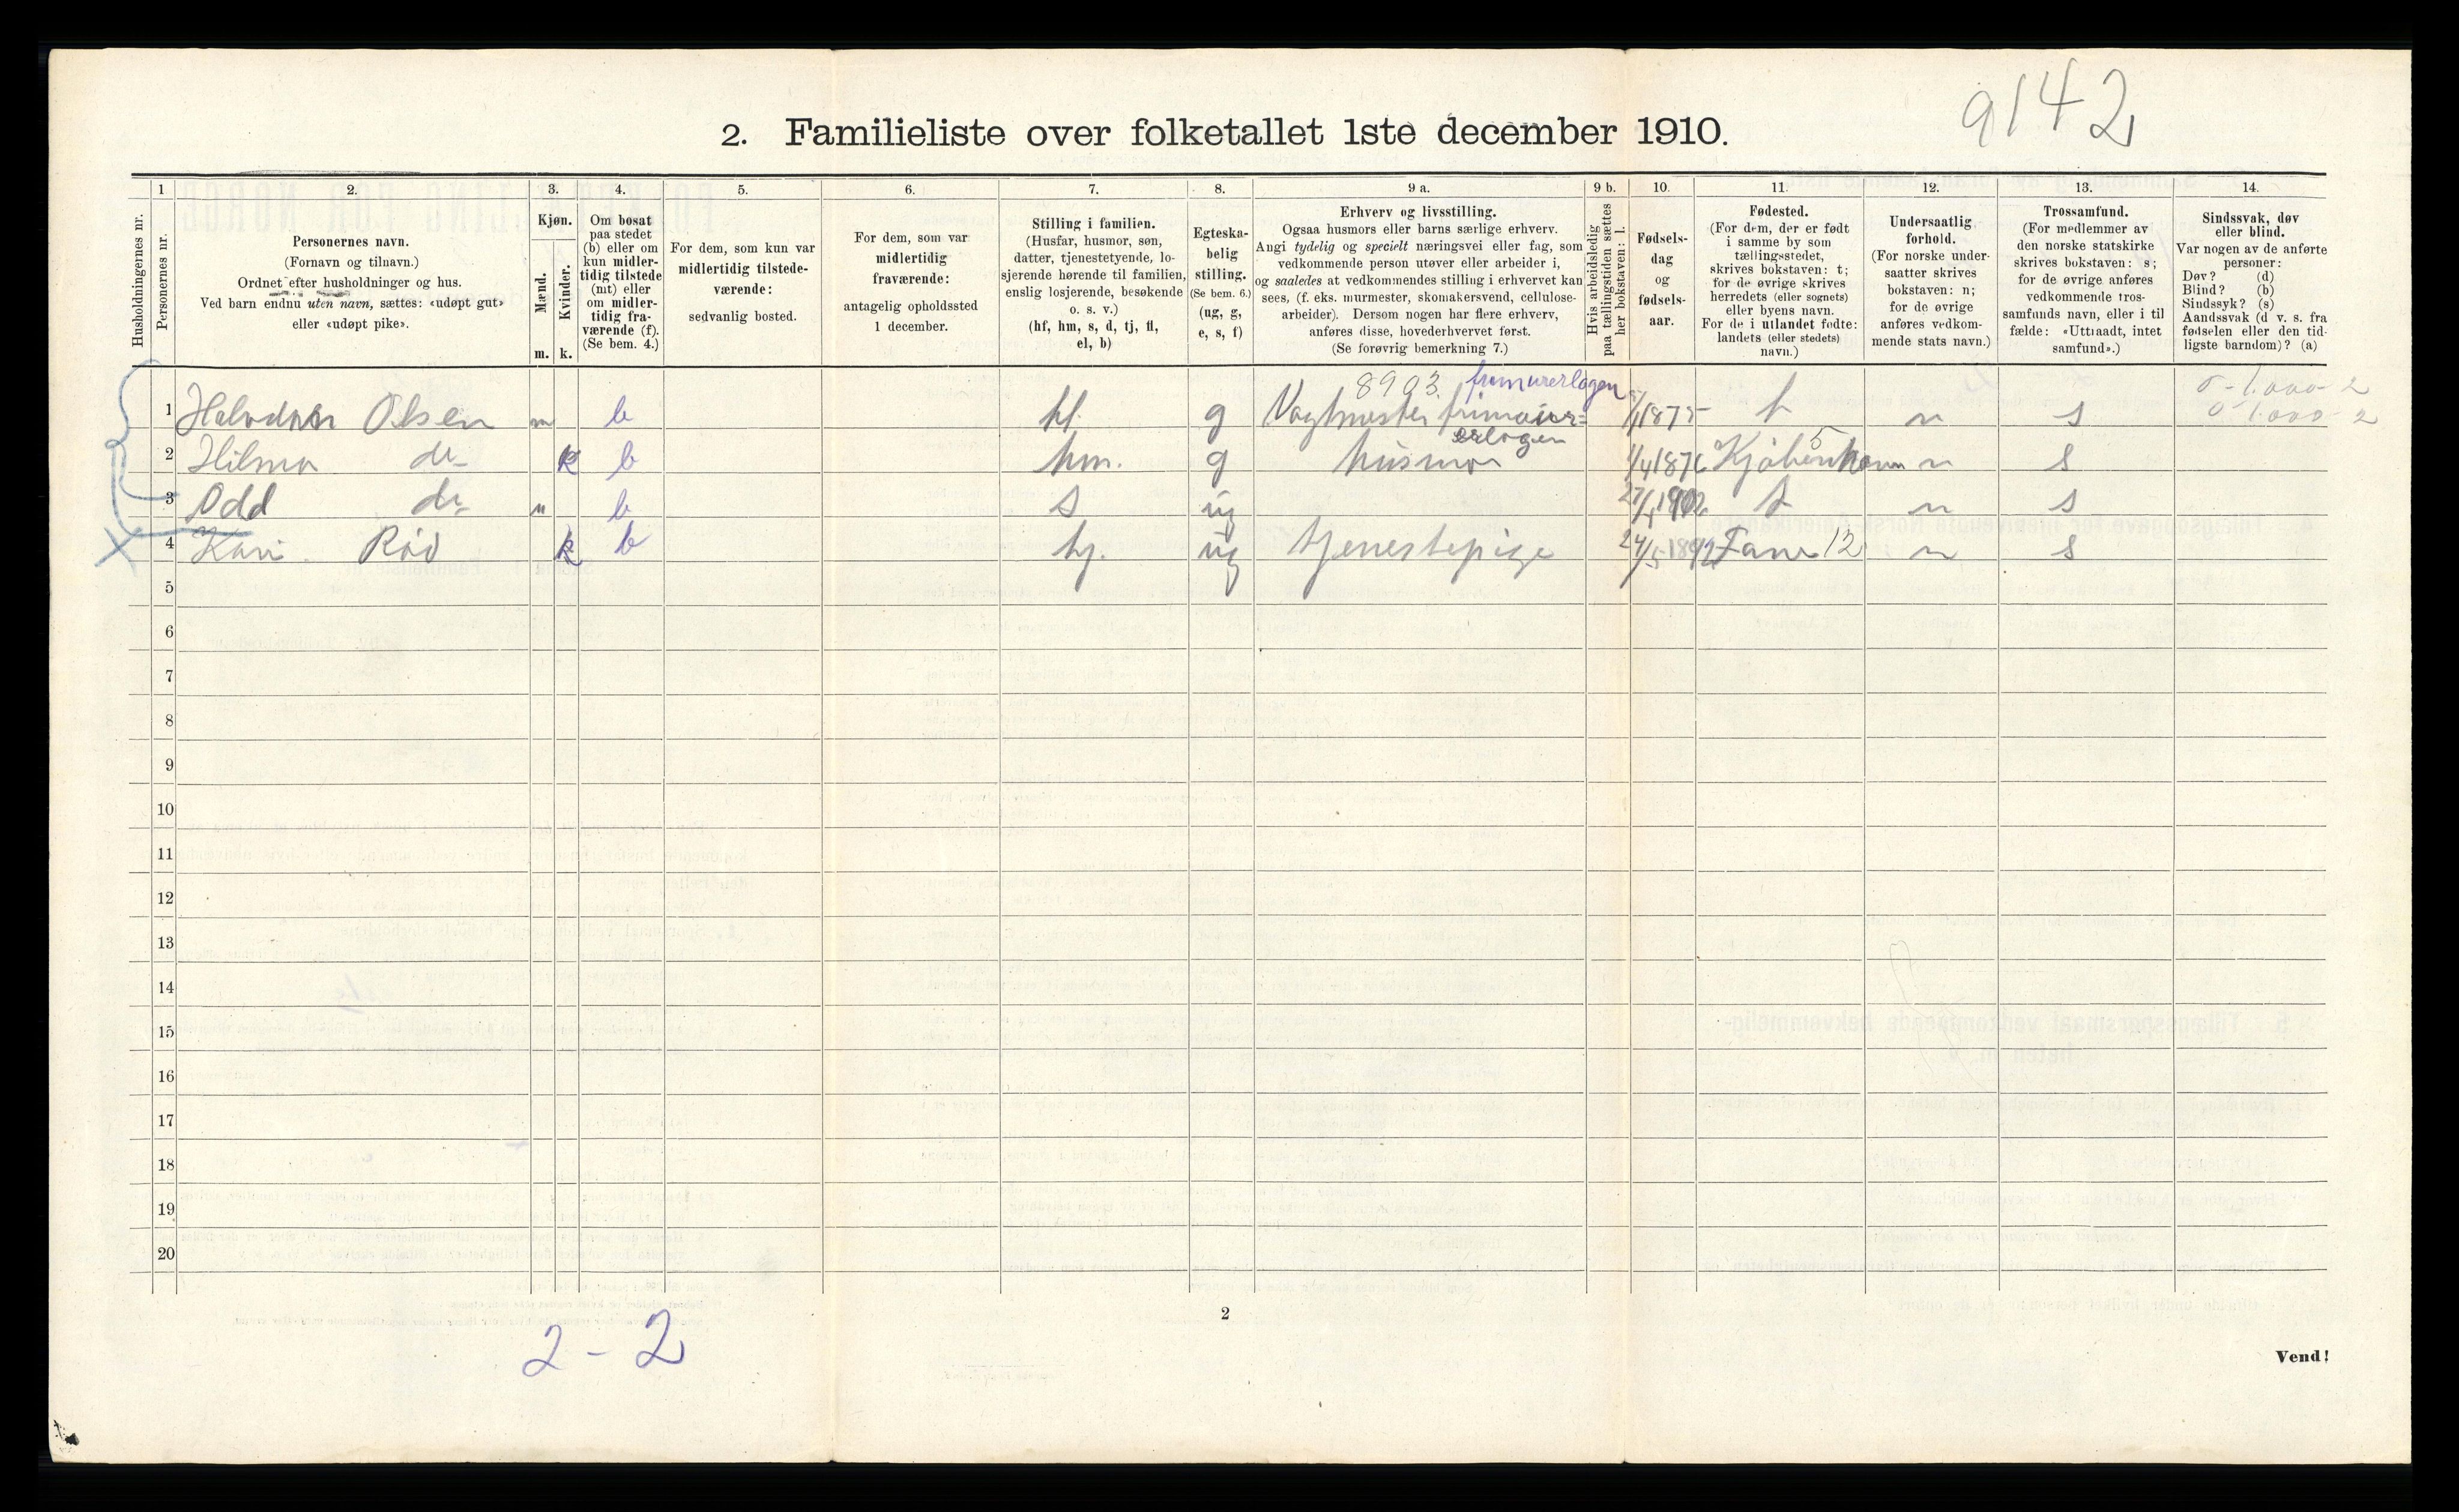 9142
2. Familieliste over folketallet 1ste december 1910.
1 2. 3. 4. 5. 6. 7. 8. 9 a. 9 b. 10. 11. 12. 13. 14.
Husholdningernes nr.
Personernes nr.
Personernes navn.
(Fornavn og tilnavn.)
Ordnet efter husholdninger og hus.
Ved barn endnu uten navn, sættes: «udøpt gut»
eller «udøpt pike».
Kjøn.
Mænd.
Kvinder.
m. k.
Om bosat
paa stedet
(b) eller om
kun midler-
tidig tilstede
(mt) eller
om midler-
tidig fra-
værende (f).
(Se bem. 4.)
For dem, som kun var
midlertidig tilstede-
værende:
sedvanlig bosted.
For dem, som var
midlertidig
fraværende:
antagelig opholdssted
1 december.
Stilling i familien.
(Husfar, husmor, søn,
datter, tjenestetyende, lo-
sjerende hørende til familien,
enslig losjerende, besøkende
o. s. v.)
(hf, hm, s, d, tj, fl,
el, b)
Egteska-
belig
stilling.
(Se bem. 6.)
(ug, g,
e, s, f)
Erhverv og livsstilling.
Ogsaa husmors eller barns særlige erhverv.
Angi tydelig og specielt næringsvei eller fag, som
vedkommende person utøver eller arbeider i,
og saaledes at vedkommendes stilling i erhvervet kan
sees, (f. eks. murmester, skomakersvend, cellulose-
arbeider). Dersom nogen har flere erhverv,
anføres disse, hovederhvervet først.
(Se forøvrig bemerkning 7.)
Hvis arbeidsledig
paa tællingstiden sættes
her bokstaven: l.
Fødsels-
dag
og
fødsels-
aar.
Fødested.
(For dem, der er født
i samme by som
tællingsstedet,
skrives bokstaven: t;
for de øvrige skrives
herredets (eller sognets)
eller byens navn.
For de i utlandet fødte:
landets (eller stedets)
navn.)
Undersaatlig
forhold.
(For norske under-
saatter skrives
bokstaven: n;
for de øvrige
anføres vedkom-
mende stats navn.)
Trossamfund.
(For medlemmer av
den norske statskirke
skrives bokstaven: s;
for de øvrige anføres
vedkommende tros-
samfunds navn, eller i til
fælde: «Uttraadt, intet
samfund».)
Sindssvak, døv
eller blind.
Var nogen av de anførte
personer:
Døv? (d)
Blind? (b)
Sindssyk? (s)
Aandssvak (d v. s. fra
fødselen eller den tid-
ligste barndom)? (a)
8903. frimurerlogen 0-1.000-2
1 Halvdan Olsen m b hf. g Vagtmester frimurer- 1875 t n s 0-1.000-2
erlogen
2 Hilma do k b hm. g husmor 1/4 1876 Kjøbenhavn 5 n s
3 Odd do m b s ug 1902 t n s
4 Kari Rød k b tj. ug tjenestepige 24/5 1892 Fane 12 n s
5
6
7
8
9
10
11
12
13
14
15
16
17
18
19
20
2
2 - 2
Vend!